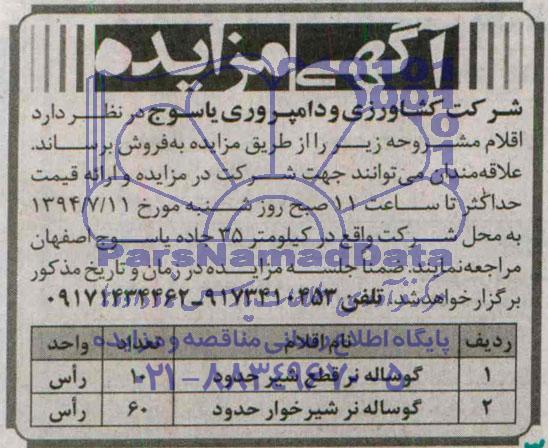 آگهی مزایده
شرکت کشاورزی و دامپروری یاسوج در نظر دارد
اقلام مشروحه زیر را از طریق مزایده به فروش برساند.
علاقه‌مندان می‌توانند جهت شرکت در مزایده و ارائه قیمت
حداکثر تا ساعت ۱۱ صبح روز شنبه مورخ ۱۳۹۴/۷/۱۱
به محل شرکت واقع در کیلومتر ۳۵ جاده یاسوج اصفهان
مراجعه نمایند. ضمناً جلسه مزایده در زمان و تاریخ مذکور
برگزار خواهد شد. تلفن ۹۱۷۳۴۱۰۴۵۳ـ۰۹۱۷۱۴۳۴۴۶۲
ParsNamadData
پایگاه اطلاع رسانی مناقصه و مزایده
۰۲۱-۸۸۳۴۹۶۷۰-۵
ردیف نام اقلام تعداد واحد
۱ گوساله نر قطع شیر حدود ۱۰ رأس
۲ گوساله نر شیرخوار حدود ۶۰ رأس